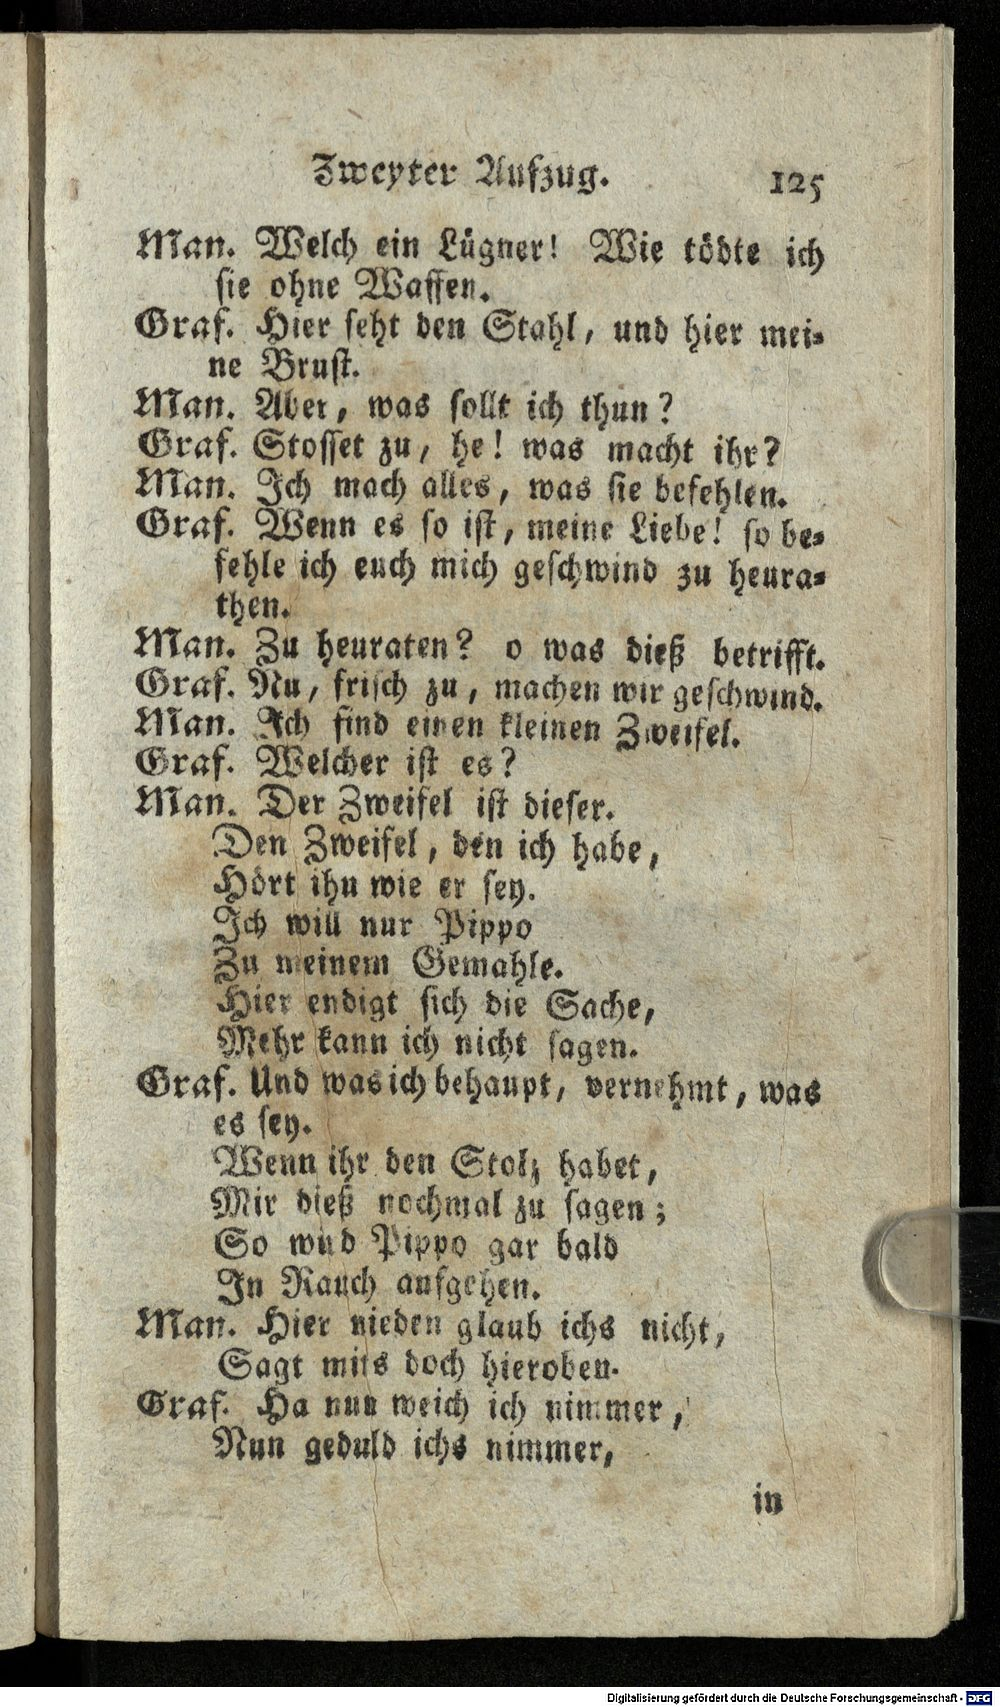 Zweyter Aufzug. 125
Man. Welch ein Lügner! Wie tödte ich
sie ohne Waffen.
Graf. Hier seht den Stahl, und hier mei-
ne Brust.
Man. Aber, was sollt ich thun?
Graf. Stosset zu, he! was macht ihr?
Man. Ich mach alles, was sie befehlen.
Graf. Wenn es so ist, meine Liebe! so be-
fehle ich euch mich geschwind zu heura-
then.
Man. Zu heuraten? o was dieß betrifft.
Graf. Nu, frisch zu, machen wir geschwind.
Man. Ich find einen kleinen Zweifel.
Graf. Welcher ist es?
Man. Der Zweifel ist dieser.
Den Zweifel, den ich habe,
Hört ihn wie er sey.
Ich will nur Pippo
Zu meinem Gemahle.
Hier endigt sich die Sache,
Mehr kann ich nicht sagen.
Graf. Und was ich behaupt, vernehmt, was
es sey.
Wenn ihr den Stolz habet,
Mir dieß nochmal zu sagen;
So wird Pippo gar bald
In Rauch aufgehen.
Man. Hier nieden glaub ichs nicht,
Sagt mirs doch hieroben.
Graf. Ha nun weich ich nimmer,
Nun geduld ichs nimmer,
in
Digitalisierung gefördert durch die Deutsche Forschungsgemeinschaft - DFG